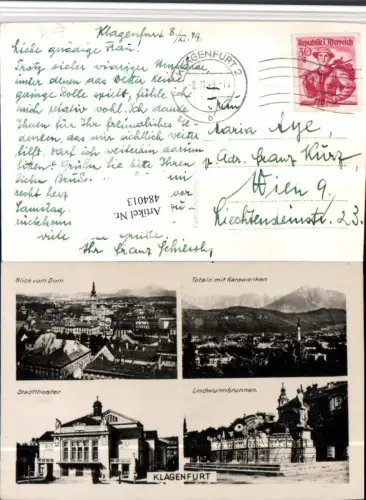 Klagenfurt 8/XI. 49.
Liebe gnädige Frau!
Trotz vieler widriger Umstände
unter denen das Wetter keine
geringe Rolle spielt, fühle ich
mich relativ wohl. Ich danke
Ihnen für Ihr freundliches Ge-
denken, das mir sichtlich weiter
hilft. Darf ich weiterhin darum
bitten? Grüßen Sie bitte Ihren
lieben
recht herz vor
Samstag. zu-
rückkom
viele Grüße.
Ihr Franz
Artikel Nr.
484013
KLAGENFURT 2
Republik Österreich
30
Frau
Maria Aye,
p. Adr. Franz Kurz,
Wien 9,
Liechtensteinstr. 23.
Blick vom Dom
Totale mit Karawanken
Stadttheater
Lindwurmbrunnen
KLAGENFURT